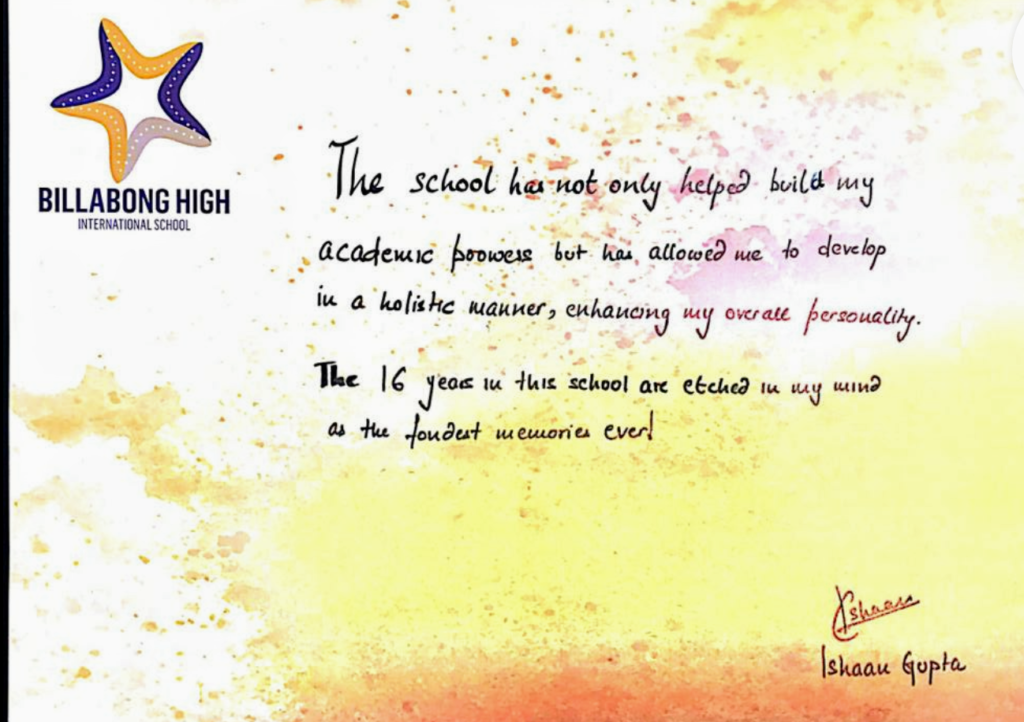 BILLABONG HIGH
INTERNATIONAL SCHOOL
The school has not only helped build my
academic prowess but has allowed me to develop
in a holistic manner, enhancing my overall personality.
The 16 years in this school are etched in my mind
as the fondest memories ever!
Ishaan
Ishaan Gupta